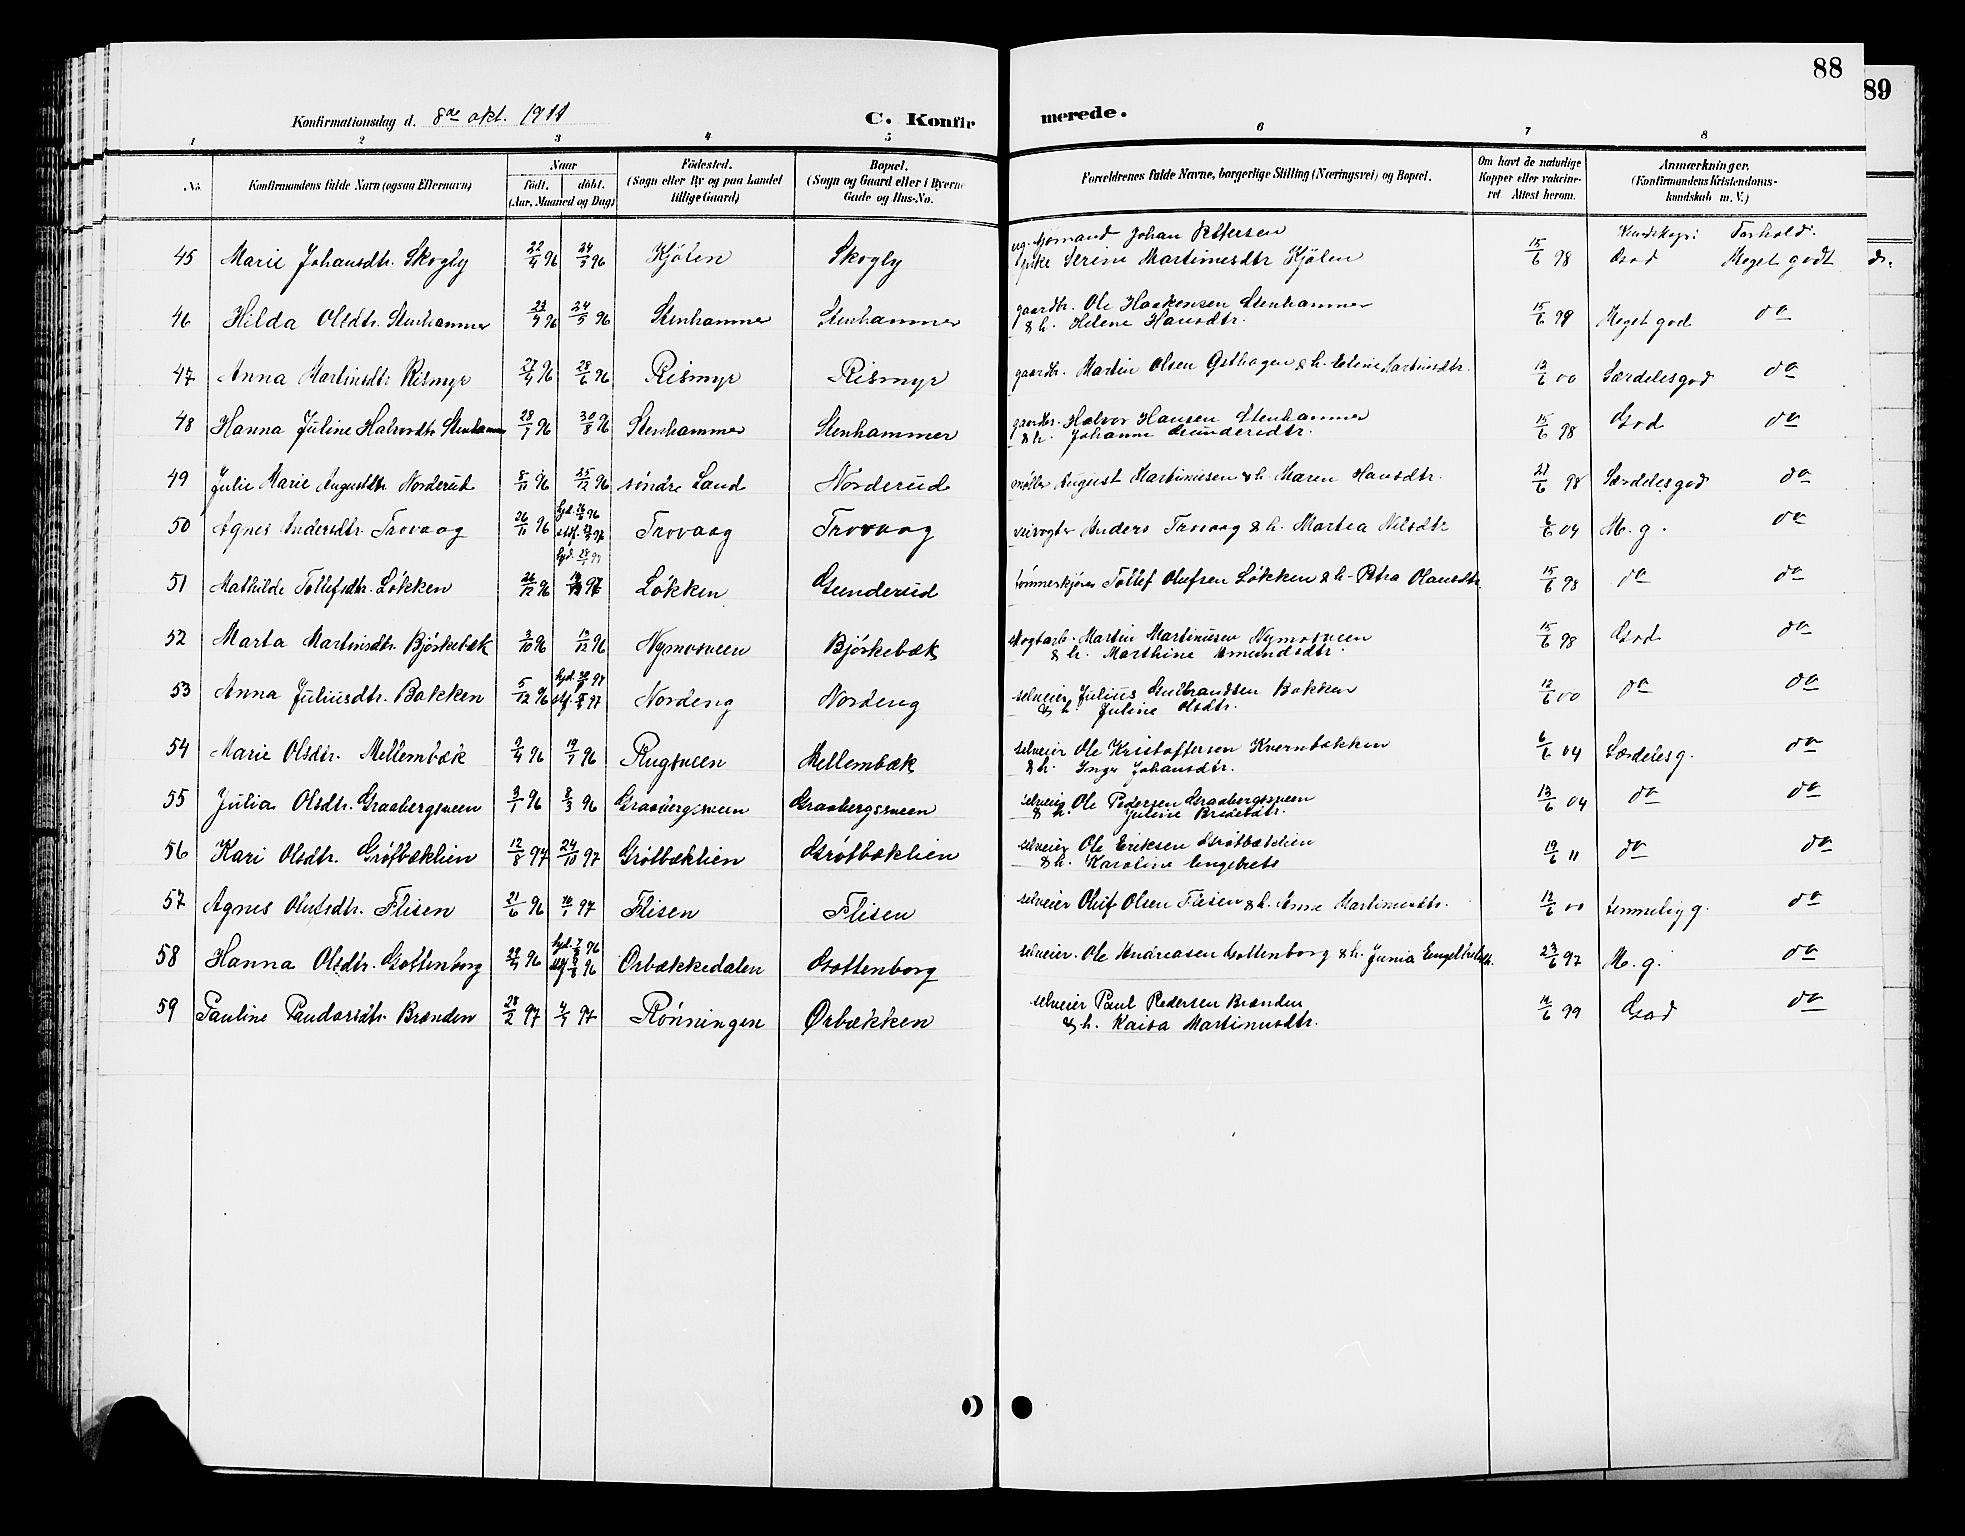 88
89
Konfirmationsdag d. 8de okt. 1911
C. Konfirmerede.
1 2 3 4 5 6 7 8
No.
Konfirmandens fulde Navn (ogsaa Efternavn)
Naar
födt. döbt.
(Aar, Maaned og Dag)
Födested.
(Sogn eller By og paa Landet
tillige Gaard)
Bopæl.
(Sogn og Gaard eller i Byerne
Gade og Hus-No.
Forældrenes fulde Navne, borgerlige Stilling (Næringsvei) og Bopæl.
Om havt de naturlige
Kopper eller vaccine-
ret Attest herom.
Anmærkninger.
(Konfirmandens Kristendoms-
kundskab m. V.)
Kundskap: Forhold:
45 Marie Johansdtr. Skogby 22/4 96 24/5 96 Kjölen Skogby ug. Johan Pettersen
pike Serine Martinusdtr Kjölen 15/6 98 God Meget godt
46 Hilda Olsdtr. Stenhammer 23/4 96 24/5 96 Stenhammer Stenhammer gaardbr. Ole Haakensen Stenhammer
& h. Helene Hansdtr. 15/6 98 Meget god do
47 Anna Martinsdtr Rismyr 27/4 96 28/6 96 Rismyr Rismyr gaardbr. Martin Olsen Östhagen & h. Eline Martinsdtr. 13/6 00 Særdeles god do
48 Hanna Juline Halvordtr Stenhammer 28/7 96 30/8 96 Stenhammer Stenhammer gaardbr. Halvor Hansen Stenhammer
& h. Johanne Gundersdtr. 15/6 98 God do
49 Julie Marie Augustdtr Norderud 8/11 96 25/12 96 söndre Land Nörderud möller August Martinusen & h. Maren Hansdtr. 21/6 98 Særdeles god do
50 Agnes Andersdtr. Trovaag 26/11 96 Trovaag Trovaag veivogter Anders Trovaag & h. Martea Nilsdtr 6/6 04 M. g. do
51 Mathilde Tollefsdtr. Lökken 26/12 96 Lökken Gunderud tömmerkjörer Tollef Olufsen Lökken & h. Petra Olausdtr. 15/6 98 do do
52 Marta Martinsdtr. Björkebæk 3/10 96 13/12 96 Nymosveen Björkebæk skogarb. Martin Martinusen Nymosveen
& h. Marthine Amundsdtr. 15/6 98 God do
53 Anna Juliusdtr. Bakken 5/12 96 Nordeng Nordeng selveier Julius Gulbrandsen Bakken
& h. Juline Olsdtr. 12/6 00 do do
54 Marie Olsdtr. Mellembæk 9/4 96 19/7 96 Rugsveen Mellembæk selveier Ole Kristoffersen Kvernbakken
& h. Inge Johansdtr. 6/6 04 Særdeles g. do
55 Julia Olsdtr. Graabergsveen 3/1 96 8/3 96 Graabergsveen Graabergsveen selveier Ole Pedersen Graabergsveen
& h. Juline 13/6 04 do do
56 Kari Olsdtr. Gröfbæklien 12/8 97 24/10 97 Gröfbæklien Gröfbæklien selveier Ole Eriksen Gröfbæklien
& h. Karoline Engebrets 19/6 11 do do
57 Agnes Olufsdtr. Flisen 21/6 96 10/1 97 Flisen Flisen selveier Oluf Olsen Flisen & h. Anne Martinusdtr. 12/6 00 temmelig g. do
58 Hanna Olsdtr. Gottenborg 96 Örbækkedalen Gottenborg selveier. Ole Andreasen Gottenborg & h. Junia 23/6 97 M. g. do
59 Pauline Brænden 28/2 97 4/7 97 Rönningen Örbækken selveier Paul Pedersen Brænden
& h. Kaisa Martinusdtr. 14/6 99 God do